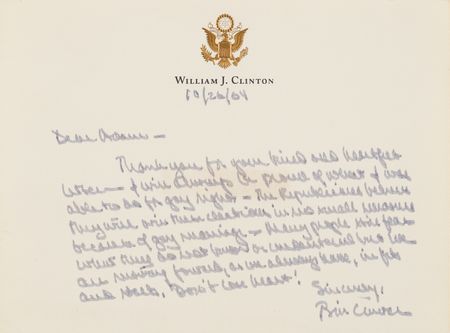 WILLIAM J. CLINTON
10/26/04
Dear Adam —
Thank you for your kind and heartfelt
letter — I will always be proud of what I was
able to do for gay rights — The Republicans believe
they will win these elections in no small measure
because of gay marriage — Many people still fear
what they do not know or understand but we
are moving forward, as we already have, in fits
and starts. Don't lose heart!
Sincerely,
Bill Clinton